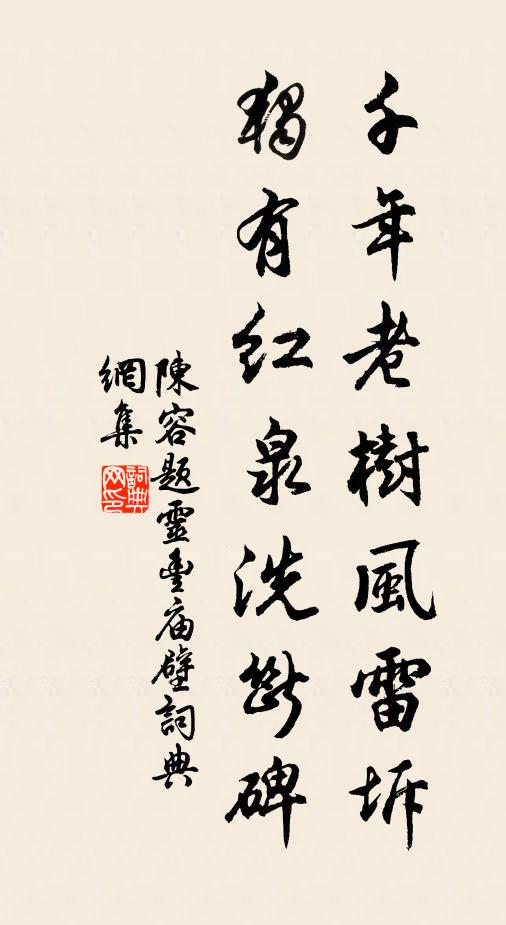 千年老樹風雷坼
獨有紅泉洗斷碑
陳容題靈豐庙壁詞典
網集
詞典
网印